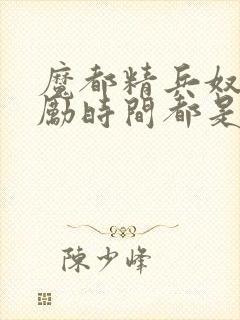 魔都精兵奴
勵時間都是
陳少峰